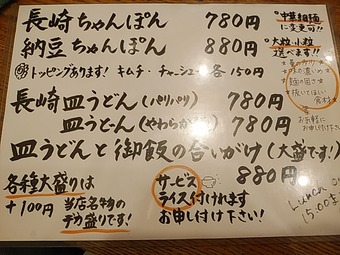 長崎ちゃんぽん 780円
納豆ちゃんぽん 880円
トッピングあります! キムチ・チャーシュー 各150円
長崎皿うどん(パリパリ) 780円
皿うどん(やわらか) 780円
皿うどんと御飯の合いがけ(大盛です!)
880円
各種大盛りは
+100円
当店名物の
デカ盛りです!
サービス
ライス付けれます
お申し付け下さい!
中華細麺
に変更可!!
大粒、小粒
選べます!!
味の濃いめ
麺の固さ
抜いてほしい
食材
お気軽に
お申し付け下さい
Lunch
15:00